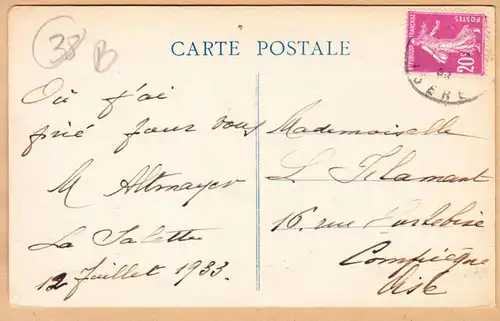 38
B
CARTE POSTALE
POSTES
20c
ISERE
Où j'ai
prié pour vous
M Altmayer
La Salette
12 Juillet 1933.
Mademoiselle
L
16 rue Hurtebise
Compiègne
Oise